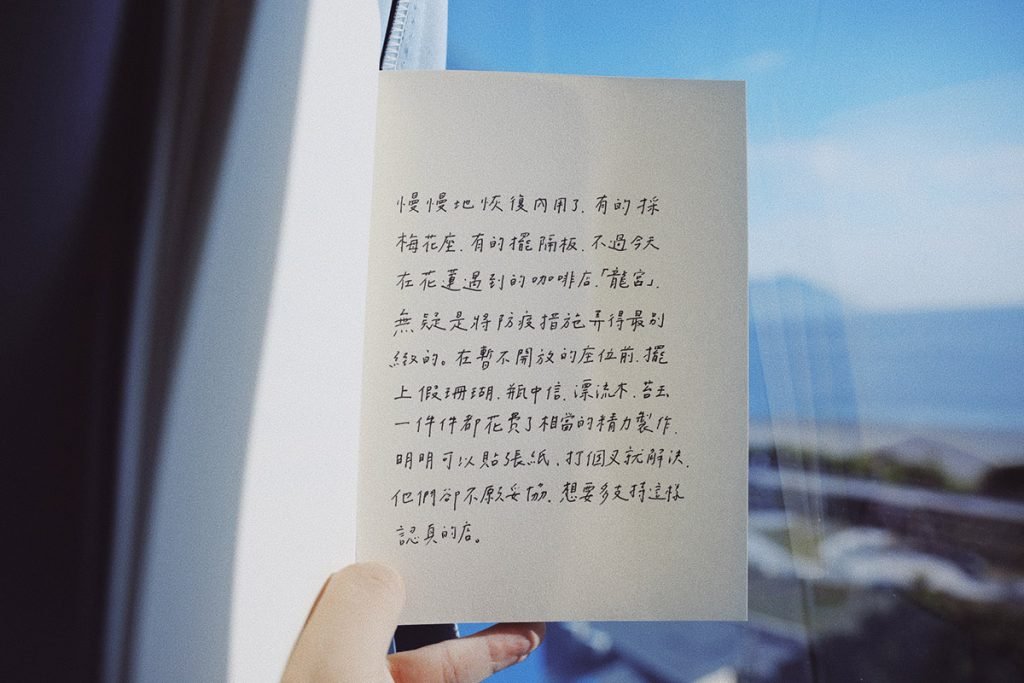 慢慢地恢復內用了、有的採
梅花座、有的擺隔板、不過今天
在花蓮遇到的咖啡店、「龍宮」、
無疑是將防疫措施弄得最別
緻的。在暫不開放的座位前、擺
上假珊瑚、瓶中信、漂流木、苔玉
一件件都花費了相當的精力製作、
明明可以貼張紙、打個叉就解決、
他們卻不願妥協、想要多支持這樣
認真的店。